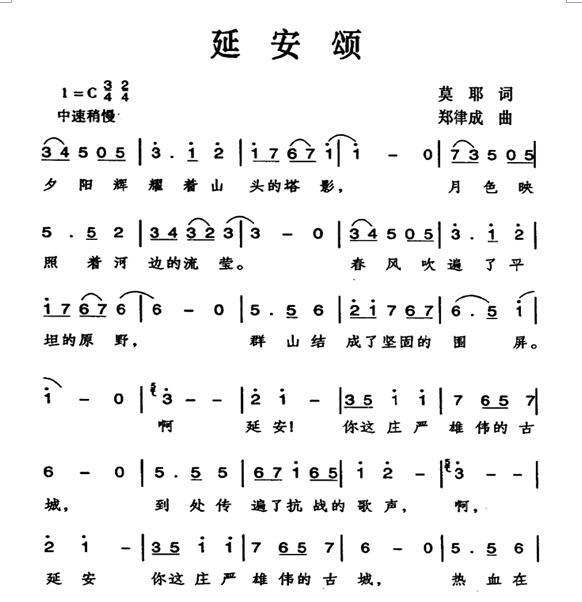 延安颂
1=C 3/4 2/4
莫耶 词
中速稍慢
郑律成 曲
3 4 5 0 5 | 3 . 1 2 | 1 7 6 7 1 | 1 - 0 | 7 3 5 0 5
夕阳辉 耀着山 头的塔 影， 月色映
5 . 5 2 | 3 4 3 2 3 | 3 - 0 | 3 4 5 0 5 | 3 . 1 2 |
照 着河 边的流 莹。 春风吹遍了平
1 7 6 7 6 | 6 - 0 | 5 . 5 6 | 2 1 7 6 7 | 6 . 5 1 |
坦的原 野， 群山结 成了坚固的 围 屏。
1 - 0 | 3 - - | 2 1 - | 3 5 1 1 | 7 6 5 7
啊 延安！ 你这庄严 雄伟的古
6 - 0 | 5 . 5 5 | 6 7 1 6 5 | 1 2 - | 3 - -
城， 到处传 遍了抗战的 歌声， 啊，
2 1 - | 3 5 1 1 | 7 6 5 7 | 6 - 0 | 5 . 5 6
延安 你这庄严 雄伟的古 城， 热血在